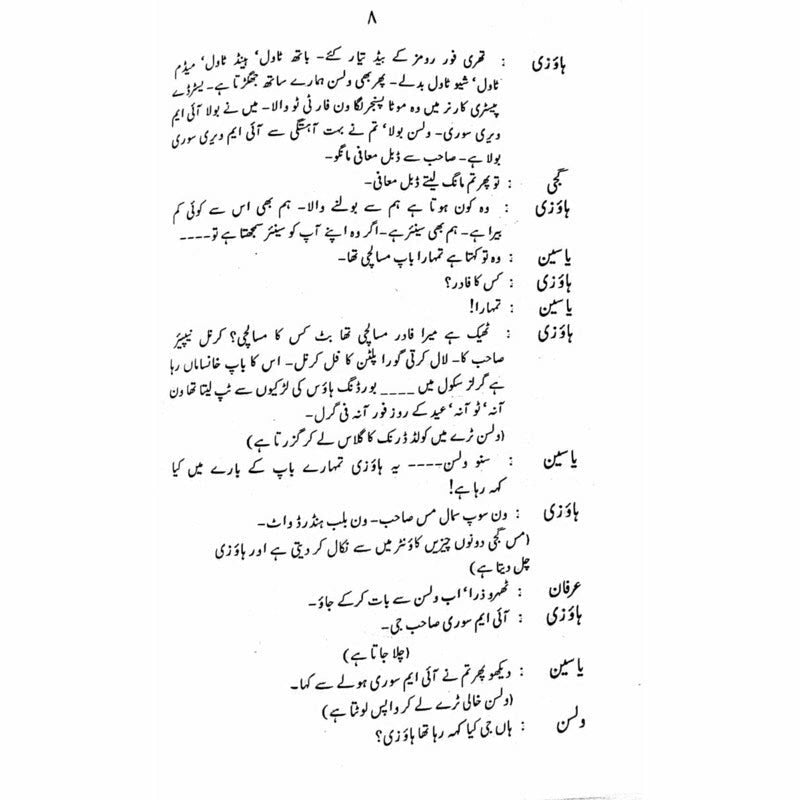 ۸
ہاؤزی : تھری فور رومز کے بیڈ تیار کئے۔ باتھ ٹاول‘ ہینڈ ٹاول‘ میڈم
ٹاول‘ شیو ٹاول بدلے۔ پھر بھی ولسن ہمارے ساتھ جھگڑتا ہے۔ یسٹرڈے
چیسٹری کارنر میں وہ موٹا پسنجر لگا ون فار ٹی ٹو والا۔ میں نے بولا آئی ایم
ویری سوری۔ ولسن بولا‘ تم نے بہت آہستگی سے آئی ایم ویری سوری
بولا ہے۔ صاحب سے ڈبل معافی مانگو۔
گجی : تو پھر تم مانگ لیتے ڈبل معافی۔
ہاؤزی : وہ کون ہوتا ہے ہم سے بولنے والا۔ ہم بھی اس سے کوئی کم
بیرا ہے۔ ہم بھی سینئر ہے۔ اگر وہ اپنے آپ کو سینئر سمجھتا ہے تو۔۔۔۔
یاسین : وہ تو کہتا ہے تمہارا باپ مسالچی تھا۔
ہاؤزی : کس کا فادر؟
یاسین : تمہارا!
ہاؤزی : ٹھیک ہے میرا فادر مسالچی تھا بٹ کس کا مسالچی؟ کرنل نیپیئر
صاحب کا۔ لال کرتی گورا پلٹن کا فل کرنل۔ اس کا باپ خانساماں رہا
ہے گرلز سکول میں ____ بورڈنگ ہاؤس کی لڑکیوں سے ٹپ لیتا تھا ون
آنہ‘ ٹو آنہ‘ عید کے روز فور آنہ فی گرل۔
(ولسن ٹرے میں کولڈ ڈرنک کا گلاس لے کر گزرتا ہے)
یاسین : سنو ولسن۔۔۔۔ یہ ہاؤزی تمہارے باپ کے بارے میں کیا
کہہ رہا ہے!
ہاؤزی : ون سوپ سمال مس صاحب۔ ون بلب ہنڈرڈ واٹ۔
(مس گجی دونوں چیزیں کاؤنٹر میں سے نکال کر دیتی ہے اور ہاؤزی
چل دیتا ہے)
عرفان : ٹھہرو ذرا‘ اب ولسن سے بات کرکے جاؤ۔
ہاؤزی : آئی ایم سوری صاحب جی۔
(چلا جاتا ہے)
یاسین : دیکھو پھر تم نے آئی ایم سوری ہولے سے کہا۔
(ولسن خالی ٹرے لے کر واپس لوٹتا ہے)
ولسن : ہاں جی کیا کہہ رہا تھا ہاؤزی؟